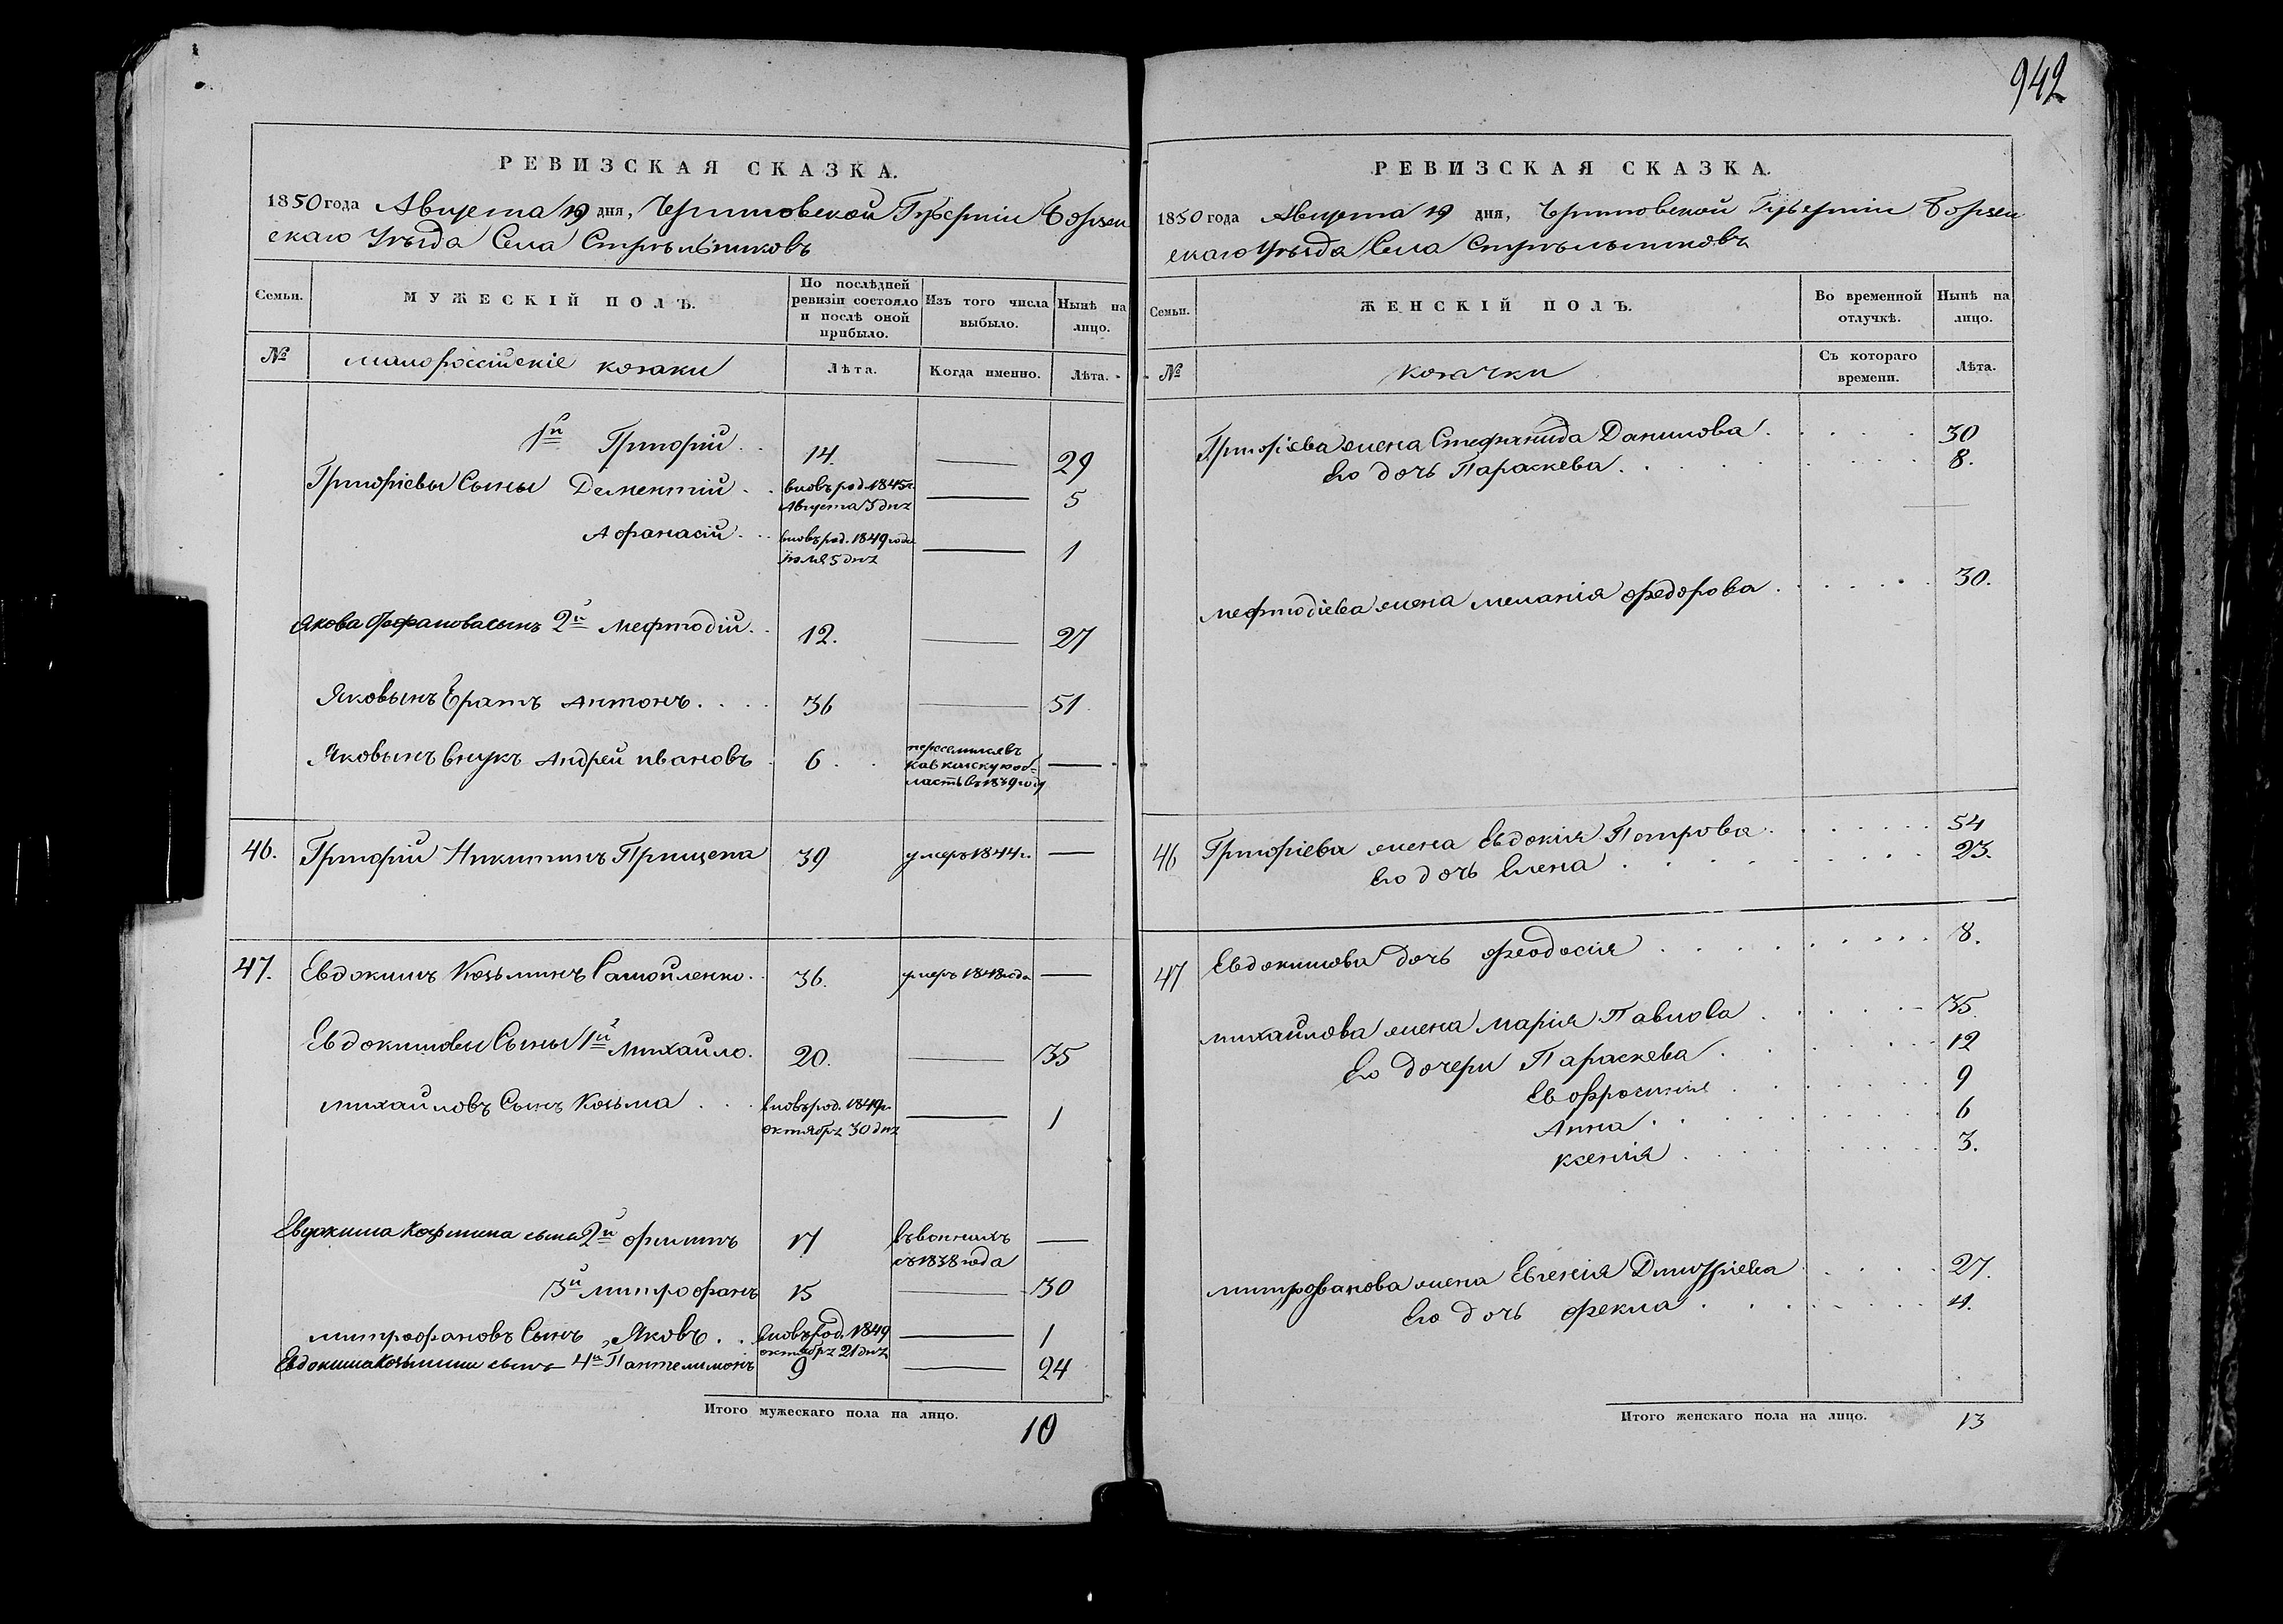 942
РЕВИЗСКАЯ СКАЗКА.
1850 года Августа 19 дня, Черниговской Губернии Борзен
скаго Уезда Села Стрѣльниковъ
Семьи. МУЖЕСКІЙ ПОЛЪ. По послѣдней ревизіи состояло и послѣ оной прибыло. Изъ того числа выбыло. Нынѣ на лицо.
№ малороссійскіе козаки Лѣта. Когда именно. Лѣта.
1й Григорій 14. — 29
Григоріевы Сыны Дементій вновь род 1845г. Августа 3 дня — 5
Афанасій вновь род. 1849 года 5 дня — 1
Якова сынъ 2й Мефтодій 12. — 27
Яковынъ братъ Антонъ 36 — 51
Яковынъ внукъ Андрей Ивановъ 6 переселился въ Кавказскую область въ 1839 году —
46. Григорій Никитинъ Прищепа 39 умеръ 1844г. —
47. Евдокимъ Козьминъ Самойленко 36. умеръ 1848 года —
Евдокимовы Сыны 1й Михайло 20. — 35
Михайловъ Сынъ Козьма вновь род. 1849г. октября 30 дня — 1
Евдокима Козьмина сынъ 2й Филипъ 17 въ военныхъ съ 1838 года —
3й Митрофанъ 15 — 30
Митрофановъ Сынъ Яковъ вновь род. 1849 октября 21 дня — 1
Евдокима Козьмина сынъ 4й Пантелимонъ 9 — 24
Итого мужескаго пола на лицо. 10
РЕВИЗСКАЯ СКАЗКА.
1850 года Августа 19 дня, Черниговской Губернии Борзен
скаго Уѣзда Села Стрѣльниковъ
Семьи. ЖЕНСКІЙ ПОЛЪ. Во временной отлучкѣ. Нынѣ на лицо.
№ козачки Съ котораго времени. Лѣта.
Григоріева жена Стефанида Данилова 30
Его дочь Параскева 8.
Мефтодіева жена Меланія Федорова 30.
46 Григоріева жена Евдокія Петрова 54
Его дочь Елена 23.
47 Евдокимова дочь Феодосія 8.
Михайлова жена Марія Павлова 35.
Его дочери Параскева 12
Евфросинія 9
Анна 6
Ксенія 3.
Митрофанова жена Евгенія Дмитріева 27.
Его дочь Фекла 4.
Итого женскаго пола на лицо. 13